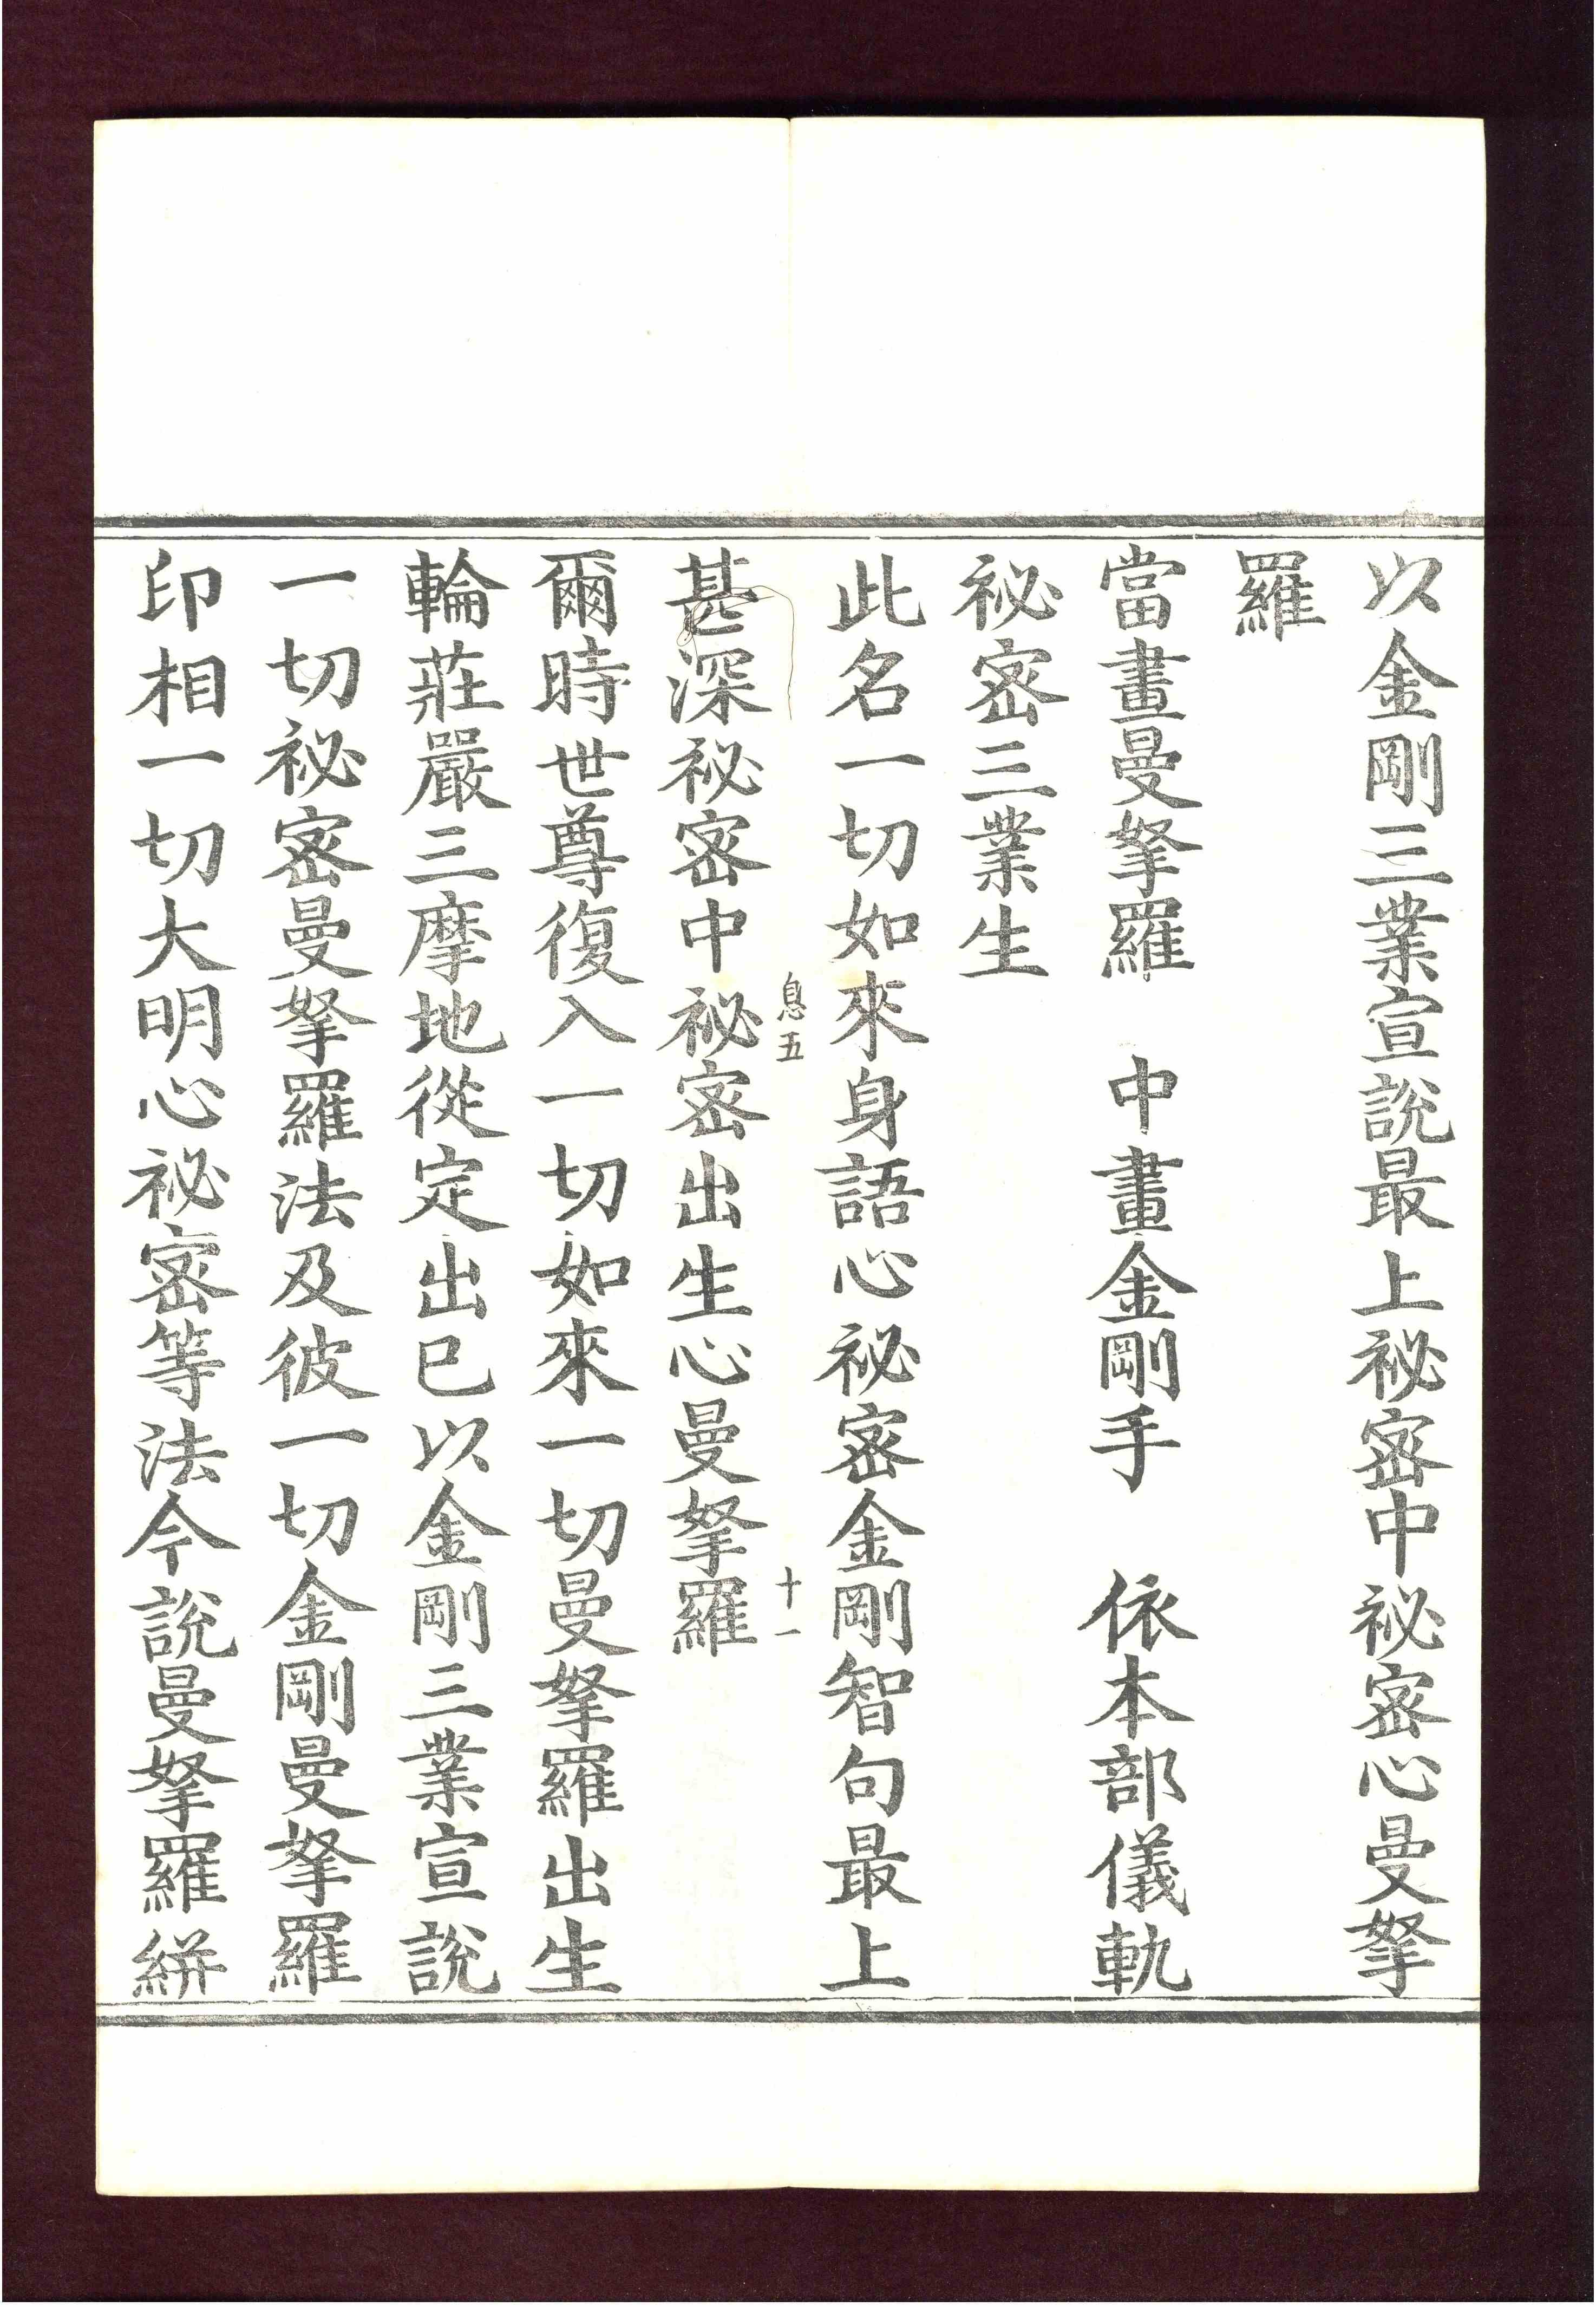 以金剛三業宣說最上祕密中祕密心曼拏
羅
當畫曼拏羅　中畫金剛手　依本部儀軌
祕密三業生
此名一切如來身語心祕密金剛智句最上
息五　十一
甚深祕密中祕密出生心曼拏羅
爾時世尊復入一切如來一切曼拏羅出生
輪莊嚴三摩地從定出已以金剛三業宣說
一切祕密曼拏羅法及彼一切金剛曼拏羅
印相一切大明心祕密等法今說曼拏羅絣